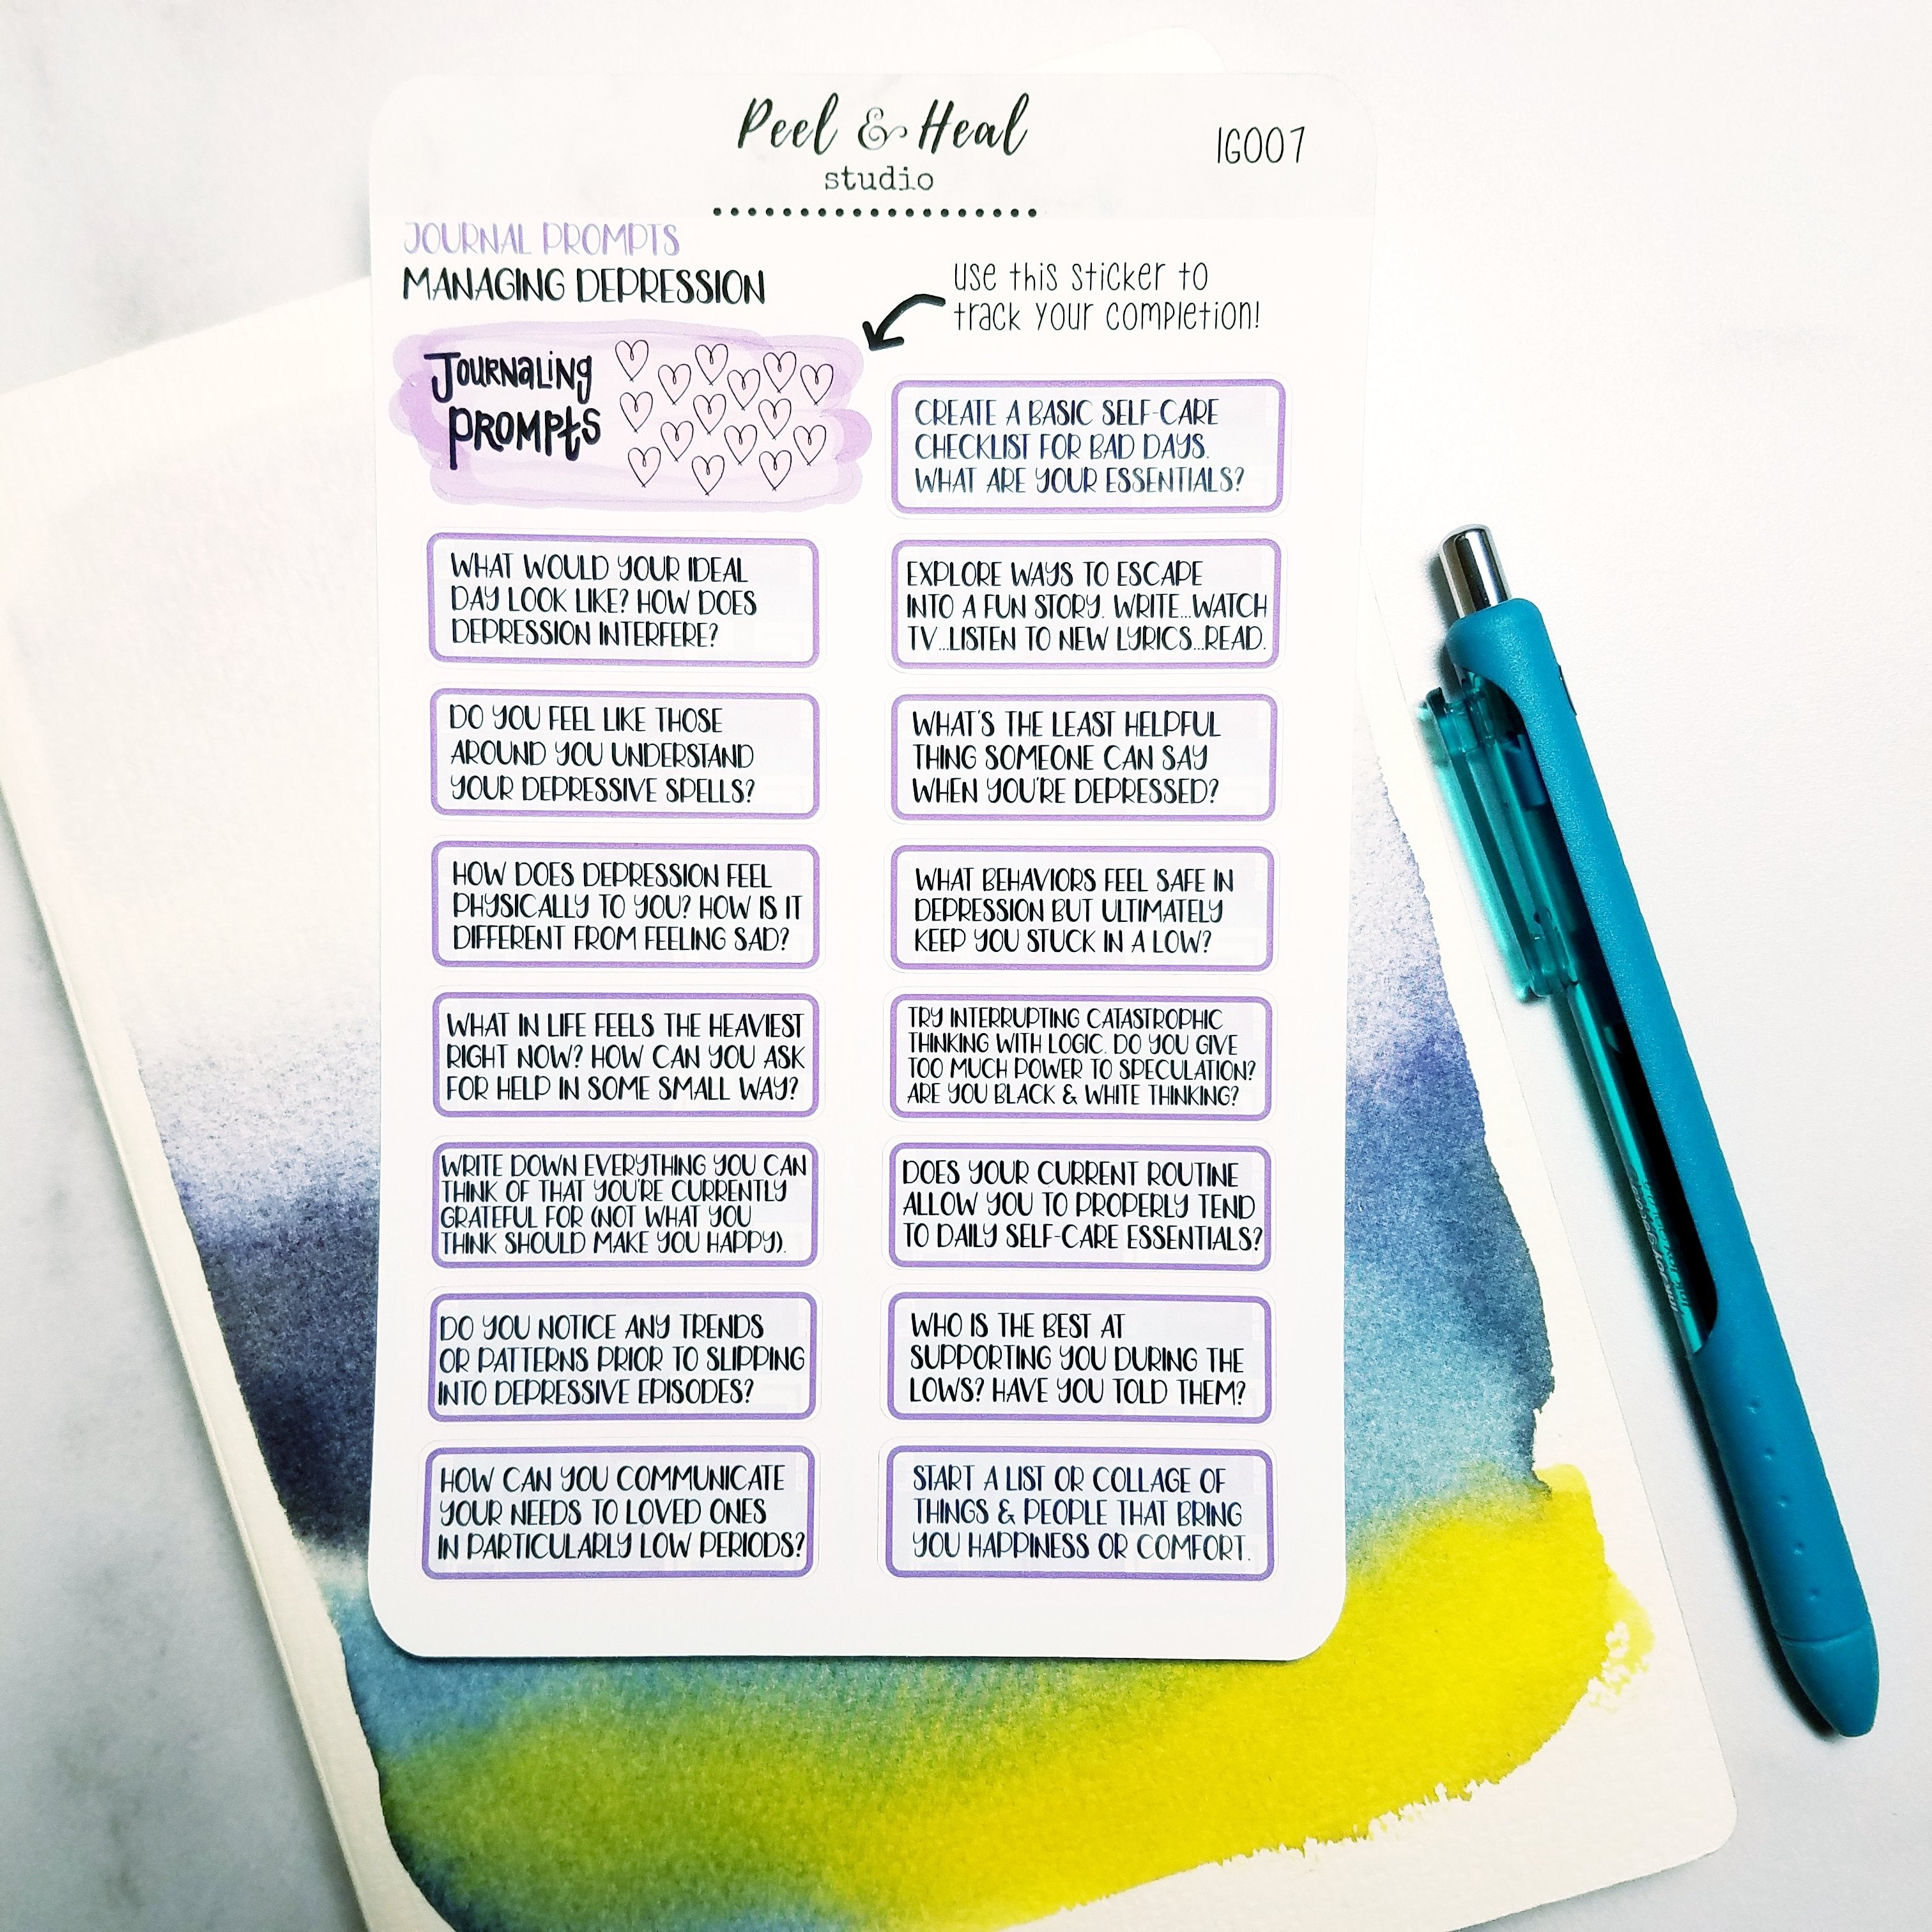 Peel & Heal
studio
IG007
JOURNAL PROMPTS
MANAGING DEPRESSION
use this sticker to
track your completion!
Journaling
Prompts
CREATE A BASIC SELF-CARE
CHECKLIST FOR BAD DAYS.
WHAT ARE YOUR ESSENTIALS?
WHAT WOULD YOUR IDEAL
DAY LOOK LIKE? HOW DOES
DEPRESSION INTERFERE?
EXPLORE WAYS TO ESCAPE
INTO A FUN STORY. WRITE...WATCH
TV...LISTEN TO NEW LYRICS...READ.
DO YOU FEEL LIKE THOSE
AROUND YOU UNDERSTAND
YOUR DEPRESSIVE SPELLS?
WHAT'S THE LEAST HELPFUL
THING SOMEONE CAN SAY
WHEN YOU'RE DEPRESSED?
HOW DOES DEPRESSION FEEL
PHYSICALLY TO YOU? HOW IS IT
DIFFERENT FROM FEELING SAD?
WHAT BEHAVIORS FEEL SAFE IN
DEPRESSION BUT ULTIMATELY
KEEP YOU STUCK IN A LOW?
WHAT IN LIFE FEELS THE HEAVIEST
RIGHT NOW? HOW CAN YOU ASK
FOR HELP IN SOME SMALL WAY?
TRY INTERRUPTING CATASTROPHIC
THINKING WITH LOGIC. DO YOU GIVE
TOO MUCH POWER TO SPECULATION?
ARE YOU BLACK & WHITE THINKING?
WRITE DOWN EVERYTHING YOU CAN
THINK OF THAT YOU'RE CURRENTLY
GRATEFUL FOR (NOT WHAT YOU
THINK SHOULD MAKE YOU HAPPY).
DOES YOUR CURRENT ROUTINE
ALLOW YOU TO PROPERLY TEND
TO DAILY SELF-CARE ESSENTIALS?
DO YOU NOTICE ANY TRENDS
OR PATTERNS PRIOR TO SLIPPING
INTO DEPRESSIVE EPISODES?
WHO IS THE BEST AT
SUPPORTING YOU DURING THE
LOWS? HAVE YOU TOLD THEM?
HOW CAN YOU COMMUNICATE
YOUR NEEDS TO LOVED ONES
IN PARTICULARLY LOW PERIODS?
START A LIST OR COLLAGE OF
THINGS & PEOPLE THAT BRING
YOU HAPPINESS OR COMFORT.